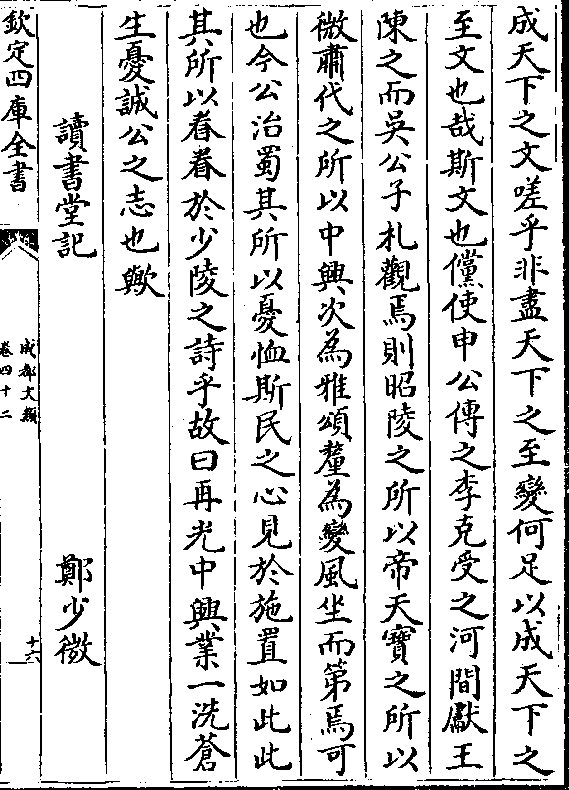 成天下之文嗟乎非盡天下之至變何足以成天下之
至文也哉斯文也儻使申公傳之李克受之河間獻王
陳之而吳公子札觀焉則昭陵之所以帝天寶之所以
微肅代之所以中興次為雅頌釐為變風坐而第焉可
也今公治蜀其所以憂恤斯民之心見於施置如此此
其所以眷眷於少陵之詩乎故曰再光中興業一洗蒼
生憂誠公之志也歟
讀書堂記 鄭少微
欽定四庫全書
成都文類
卷四十二
十六